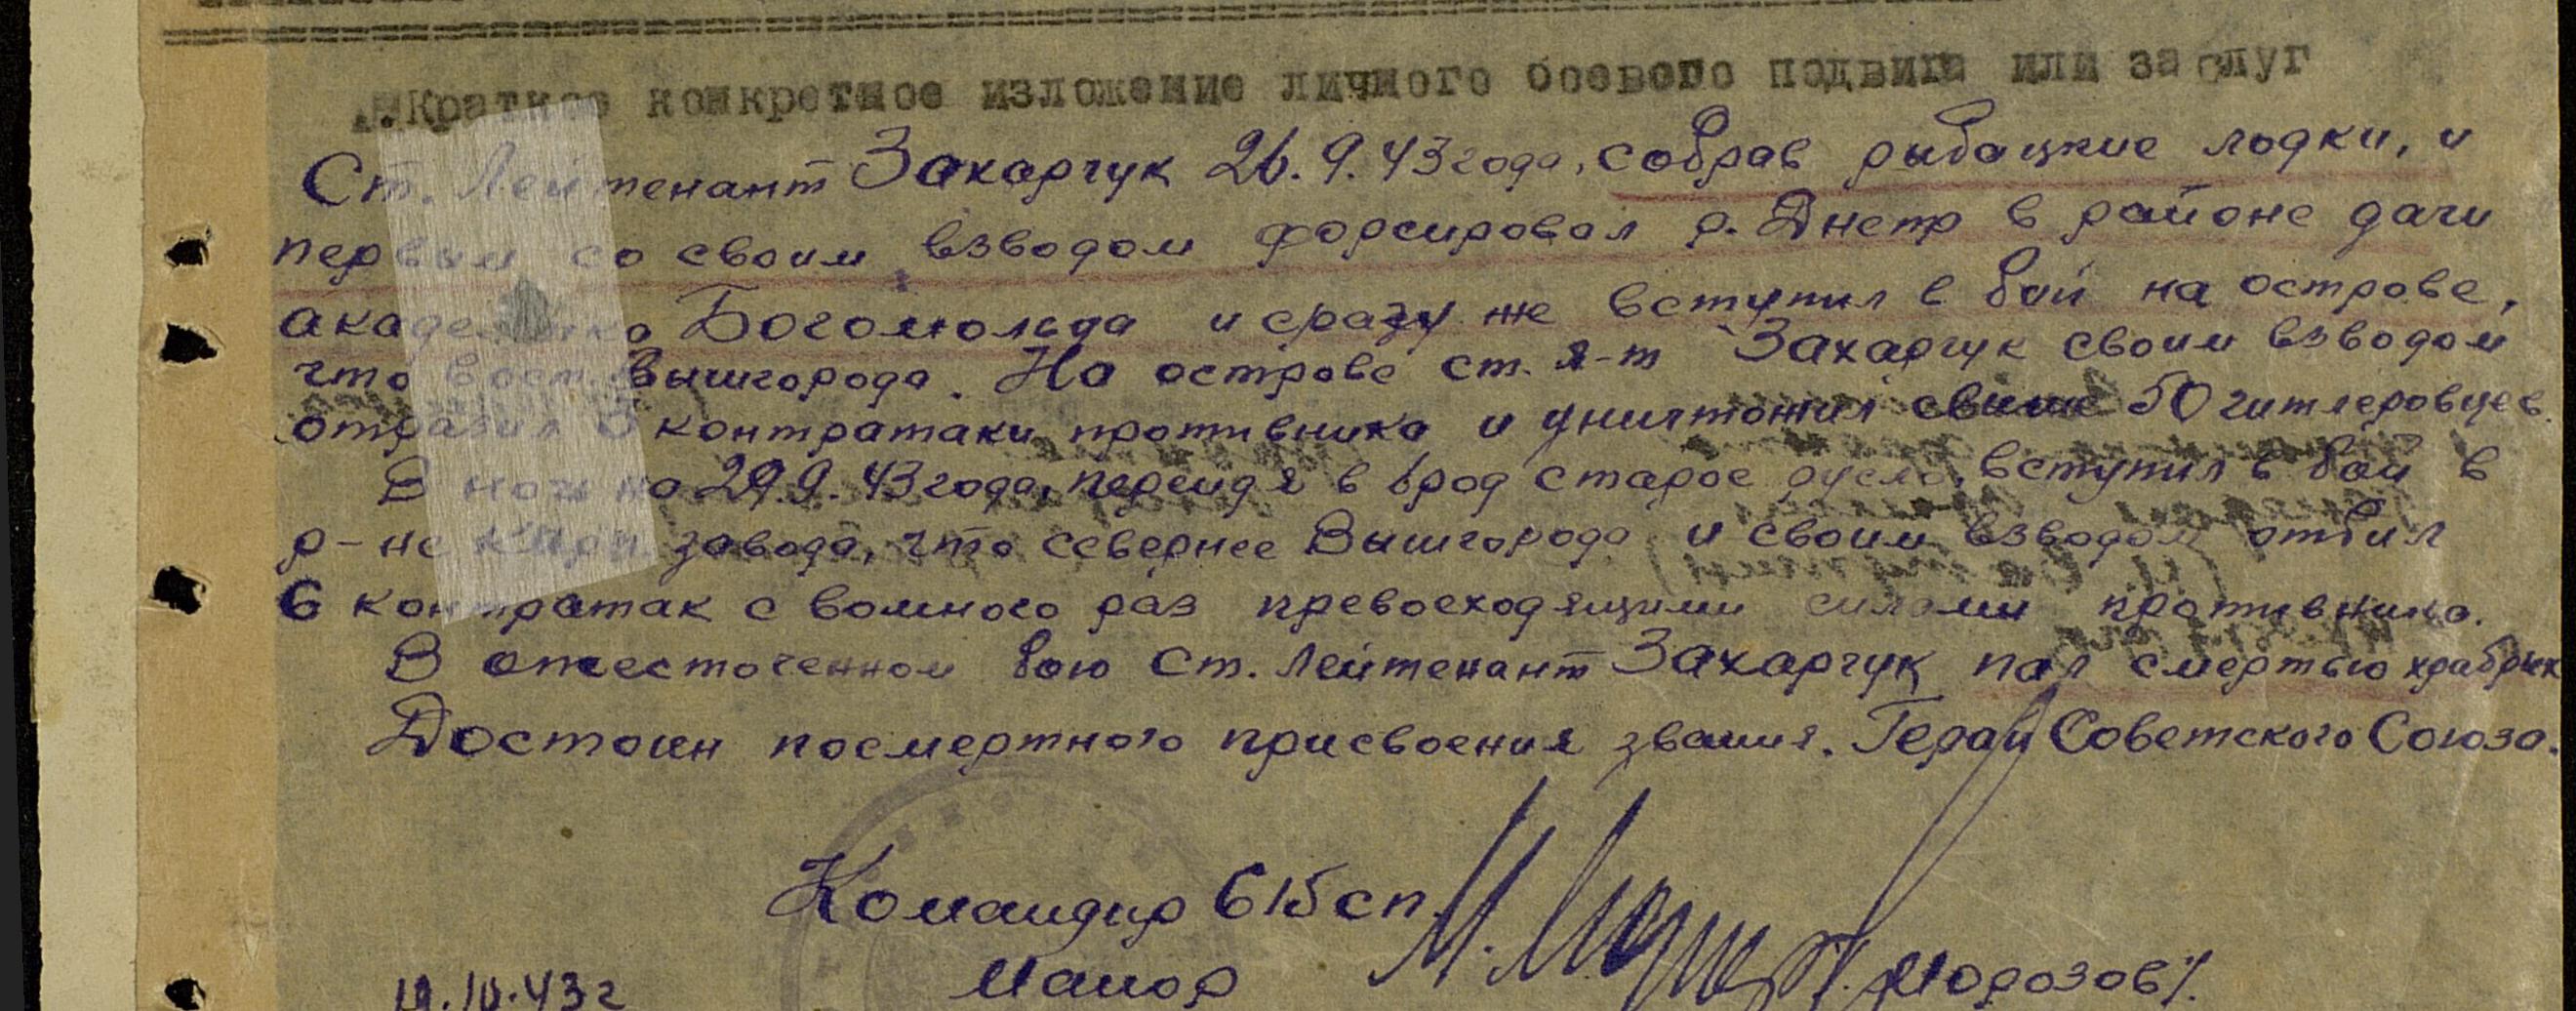 I. Краткое конкретное изложение личного боевого подвига или заслуг
Ст. Лейтенант Захарчук 26.9.43 года, собрав рыбацкие лодки, и
первым со своим взводом форсировал р. Днепр в районе дачи
академика Богомольца и сразу же вступил в бой на острове,
что вост. Вышгорода. На острове ст. л-т Захарчук своим взводом
отразил 3 контратаки противника и уничтожил свыше 50 гитлеровцев.
В ночь на 29.9.43 года, перейдя в брод старое русло, вступил в бой в
р-не кирп. завода, что севернее Вышгорода и своим взводом отбил
6 контратак с вомного раз превосходящими силами противника.
В ожесточенном бою ст. Лейтенант Захарчук пал смертью храбрых
Достоин посмертного присвоения звания. Герой Советского Союза.
Командир 615 сп.
Маиор /Морозов/.
19.10.43 г